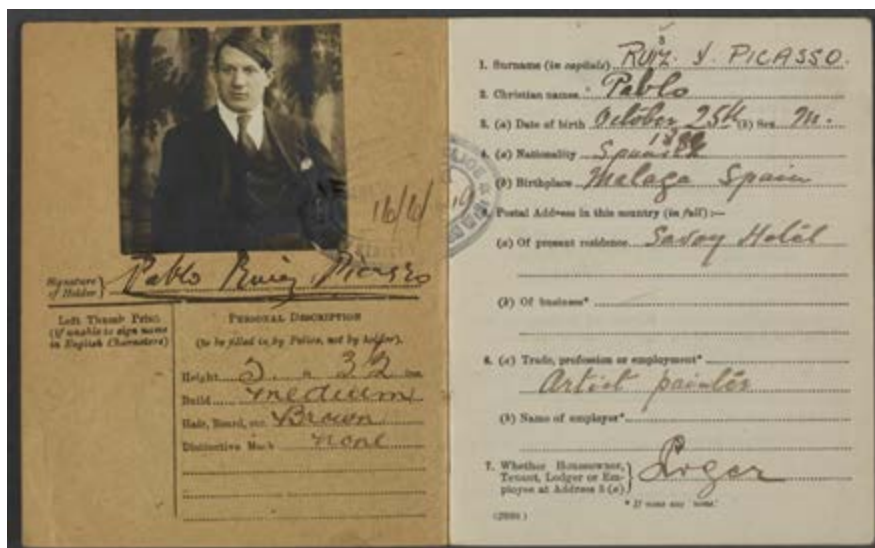 16/6/19
Signature of Holder } Pablo Ruiz Picasso
Left Thumb Print
(if unable to sign name
in English Characters)
PERSONAL DESCRIPTION
(to be filled in by Police, not by holder).
Height 5 ft. 3½ ins.
Build medium
Hair, Beard, etc. Brown
Distinctive Mark none
3
1. Surname (in capitals) RUIZ. Y. PICASSO.
2. Christian names Pablo
3. (a) Date of birth October 25th (b) Sex M.
4. (a) Nationality Spanish
(b) Birthplace Malaga Spain
5. Postal Address in this country (in full) :—
(a) Of present residence Savoy Hotel
(b) Of business*
6. (a) Trade, profession or employment*
Artist painter
(b) Name of employer*
7. Whether Houseowner,
Tenant, Lodger or Em-
ployee at Address 5 (a). } Loger
* If none say 'none.'